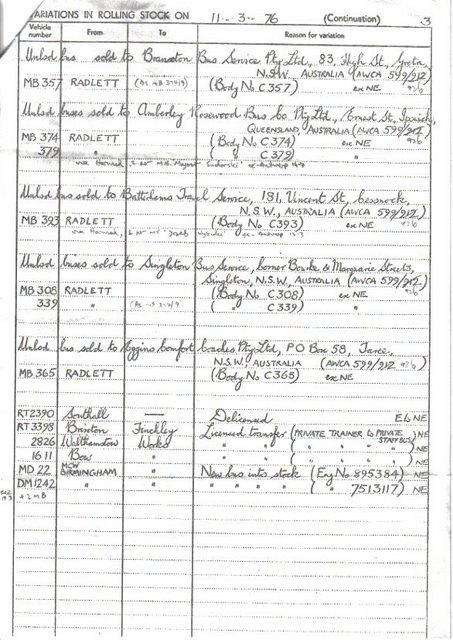 VARIATIONS IN ROLLING STOCK ON 11 - 3 - 76 (Continuation) 3
Vehicle number From To Reason for variation
Unlsd bus sold to Branxton Bus Service Pty Ltd, 83, High St, Greta,
N.S.W., AUSTRALIA (AWCA 599/212
MB 357 RADLETT (As MB 314/9) (Body No C357) ex NE 926
Unlsd buses sold to Amberley Rosewood Bus Co. Pty Ltd, Ernest St, Ipswich,
QUEENSLAND, AUSTRALIA (AWCA 599/212
MB 374 RADLETT (Body No C374) ex NE 926
379 " ( " C379) "
via Harwich,
Unlsd bus sold to Battidems Travel Service, 181, Vincent St, Cessnock,
N.S.W., AUSTRALIA (AWCA 599/212
MB 393 RADLETT (Body No C393) ex NE 926
via Harwich,
Unlsd buses sold to Singleton Bus Service, corner Bourke & Macquarie Streets,
Singleton, N.S.W., AUSTRALIA (AWCA 599/212
MB 308 RADLETT (Body No C308) ex NE 926
339 " (As MB 314/9) ( " C339) "
Unlsd bus sold to Eggins Comfort Coaches Pty Ltd, PO Box 58, Taree,
N.S.W., AUSTRALIA (AWCA 599/212 926
MB 365 RADLETT (Body No C365) ex NE
RT2390 Southall — Delicenced E to NE
RT3398 Brixton Finchley Licensed transfer (PRIVATE TRAINER to PRIVATE STAFF BUS) NE
2826 Walthamstow Works " " ( " " " ) NE
1611 Bow " " " ( " " " ) NE
MD 22 MCW BIRMINGHAM " New bus into stock (Eng No 895384) NE
DM1242 " " " " " " ( " 7513117) NE
+ 2 MB